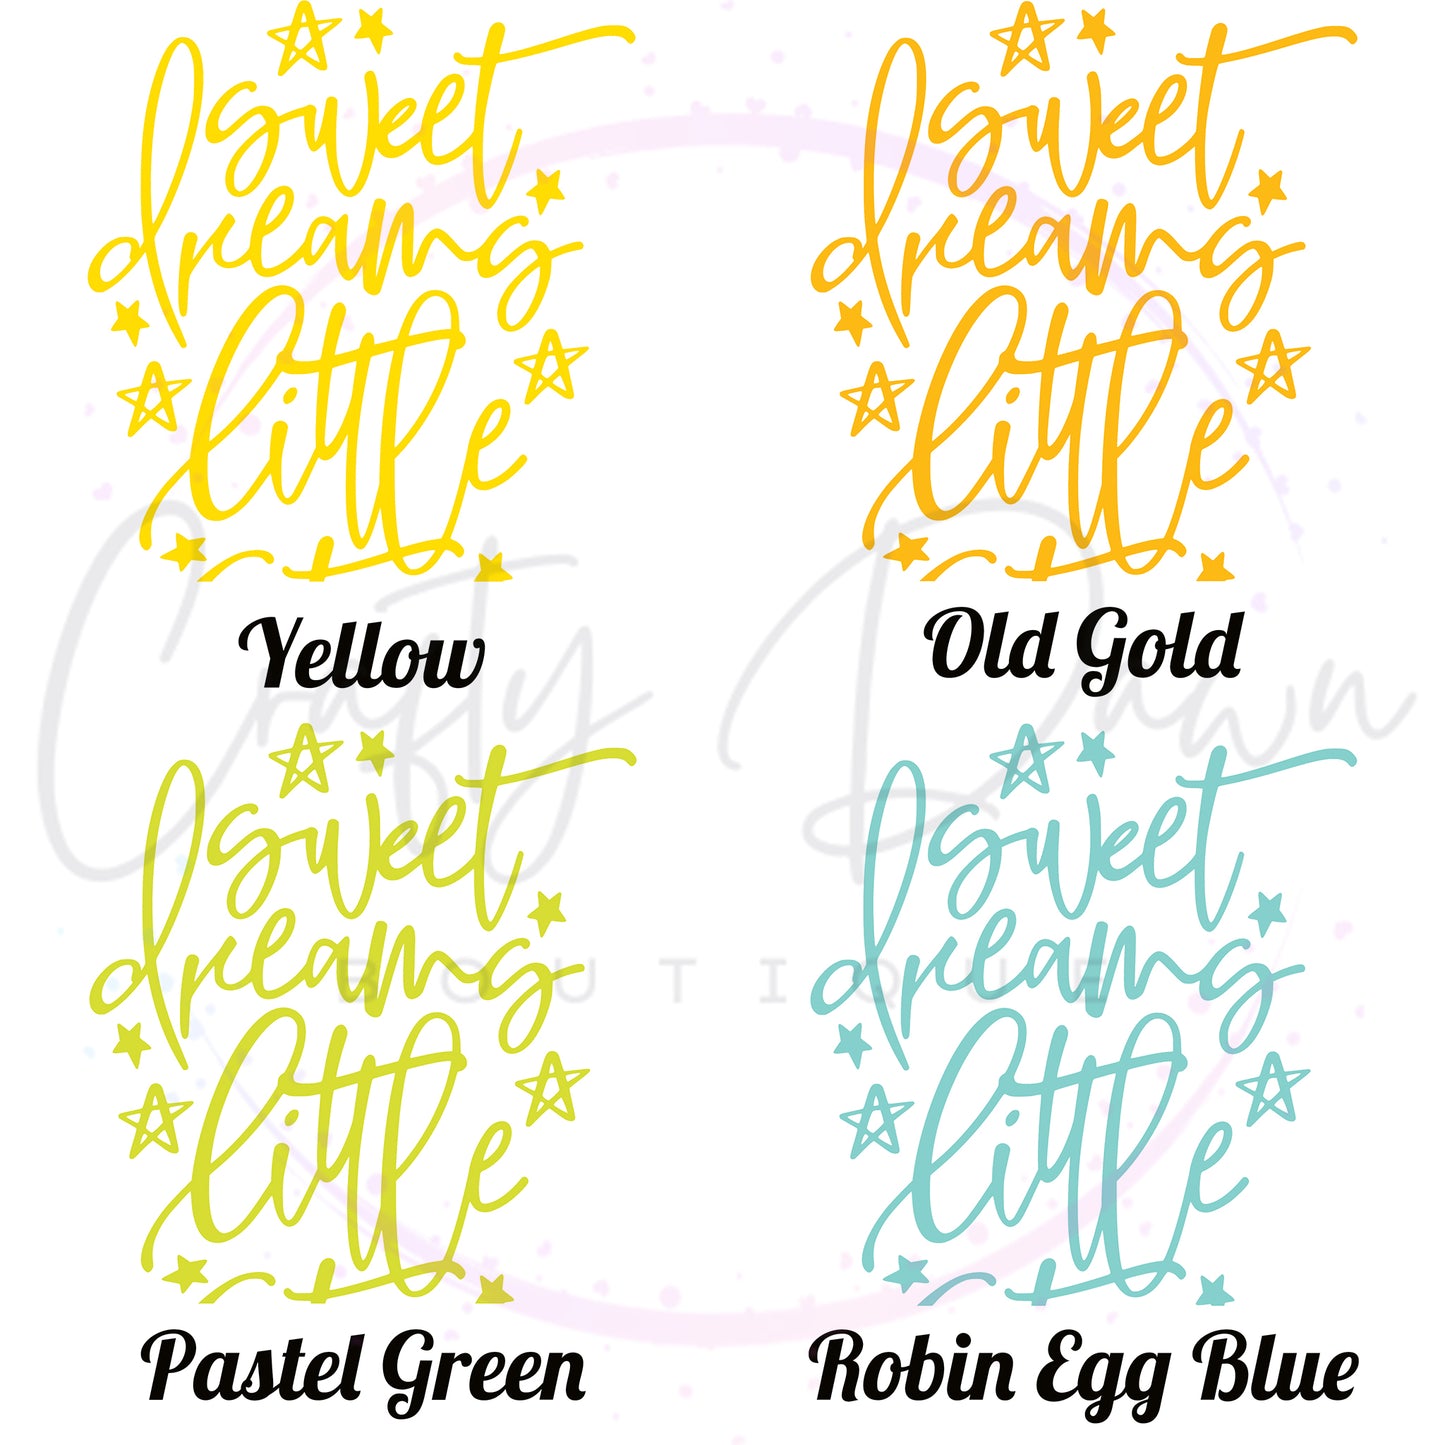 sweet
dreams
little
Yellow
sweet
dreams
little
Old Gold
Crafty Dawn
BOUTIQUE
sweet
dreams
little
Pastel Green
sweet
dreams
little
Robin Egg Blue